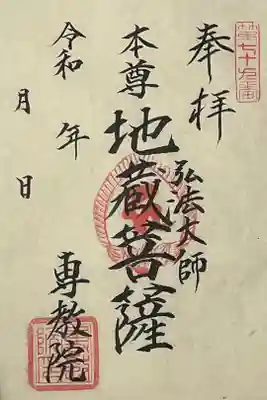 奉拝
第七十九番
弘法大師
本尊
地蔵菩薩
専教院
令和 年
月 日